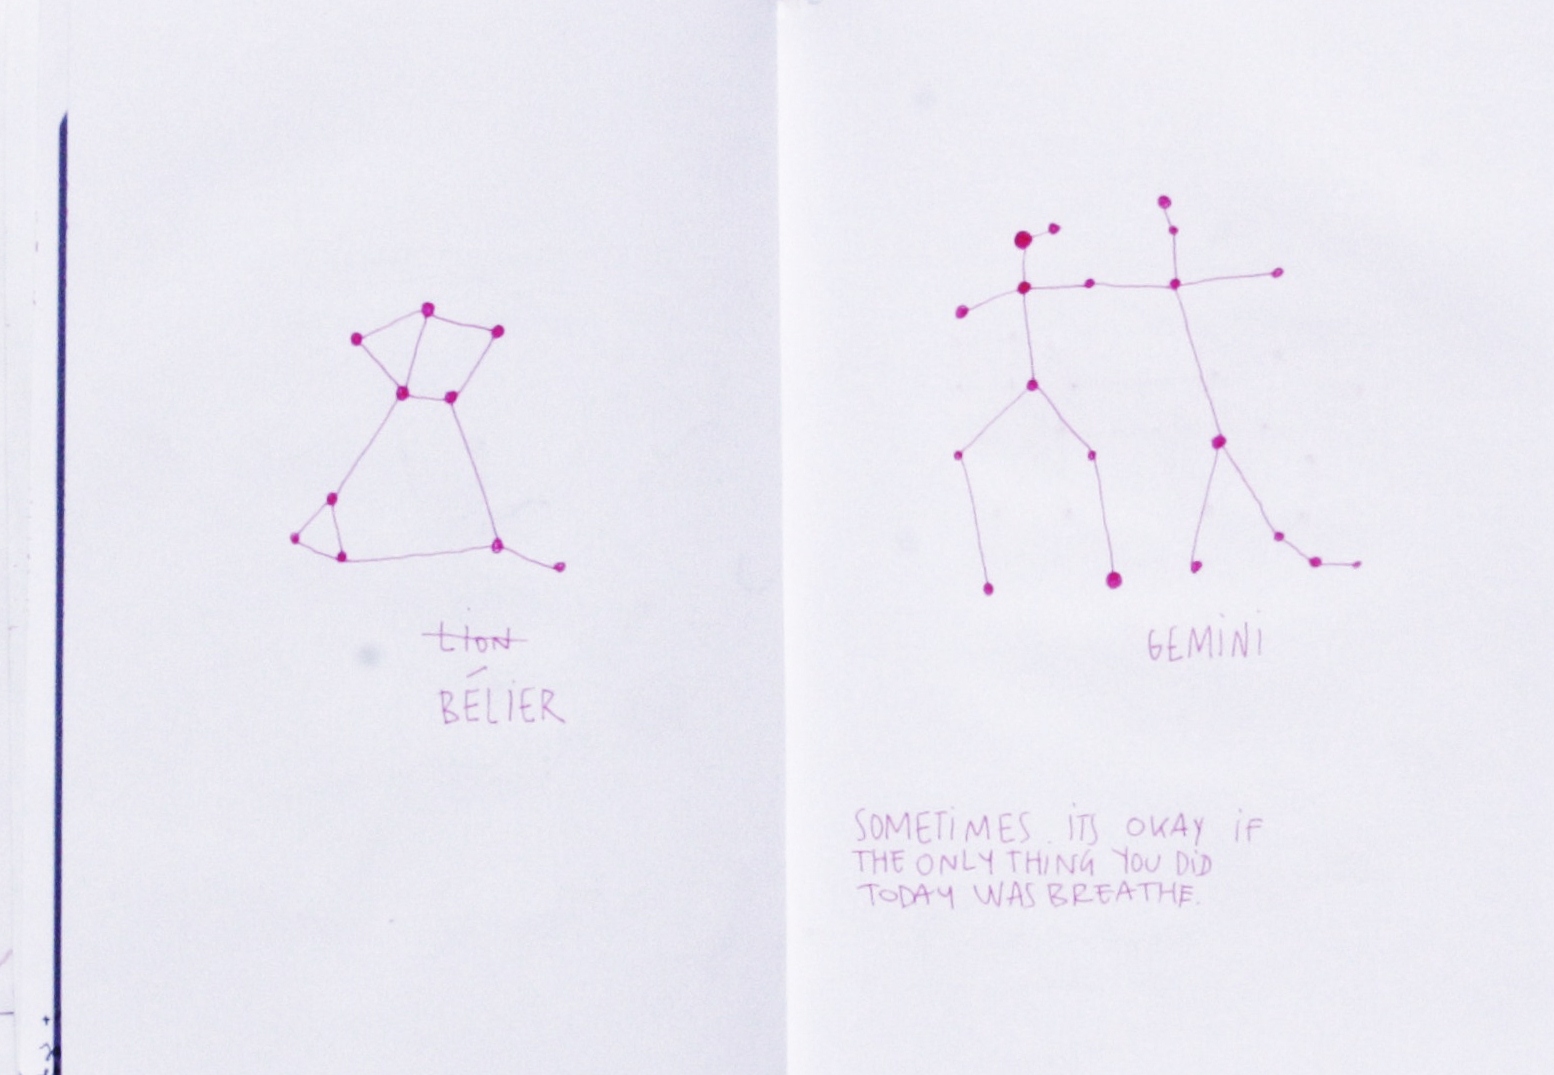 LION
BÉLIER
GEMINI
SOMETIMES ITS OKAY IF
THE ONLY THING YOU DID
TODAY WAS BREATHE.